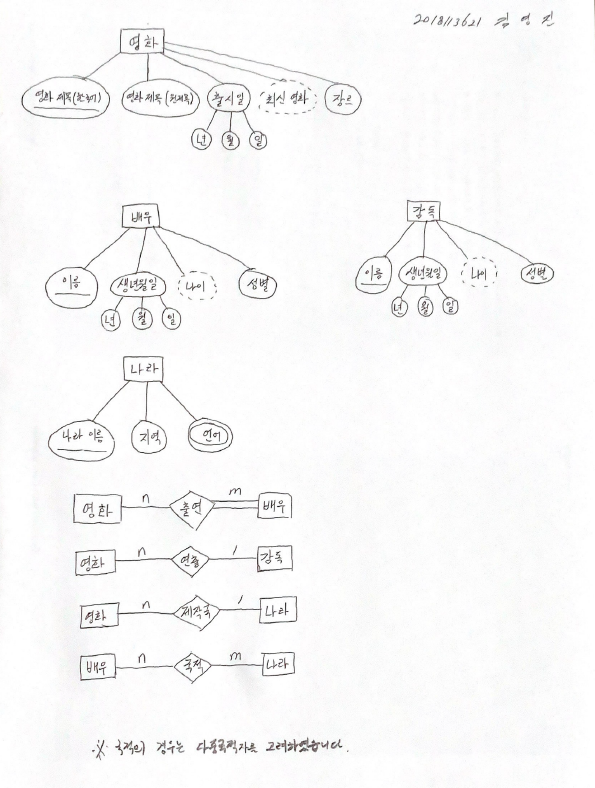 2018113621 김영진
영화
영화 제목(한국어) 영화 제목(원제목) 출시일 최신 영화 장르
년 월 일
배우 감독
이름 생년월일 나이 성별 이름 생년월일 나이 성별
년 월 일 년 월 일
나라
나라 이름 지역 언어
영화 n 출연 m 배우
영화 n 연출 1 감독
영화 n 제작국 1 나라
배우 n 국적 m 나라
※ 국적의 경우는 다중국적자를 고려하였습니다.